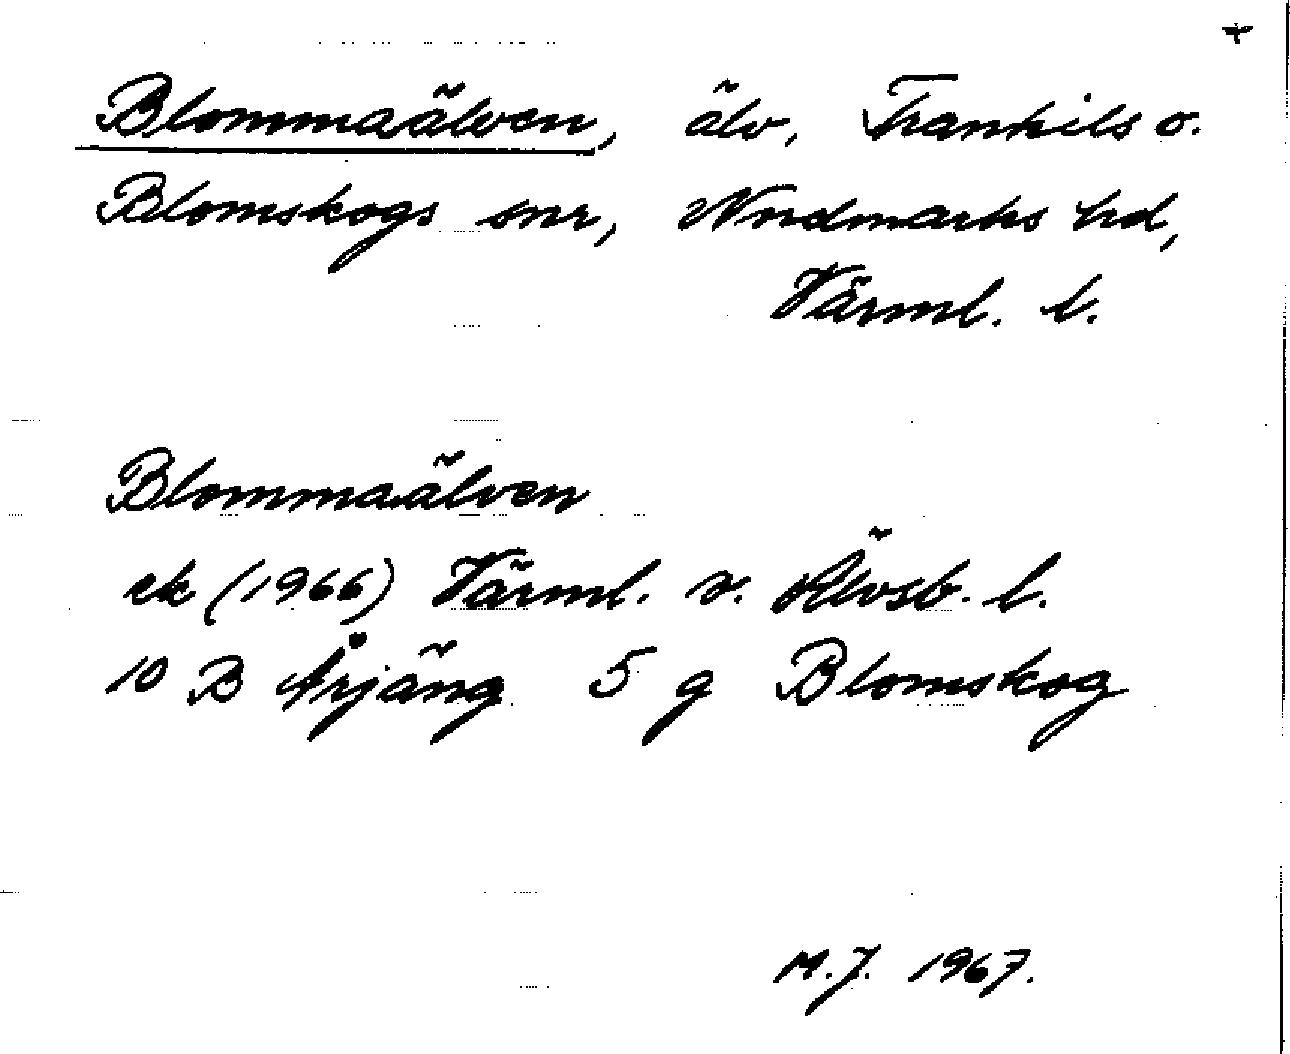 +
Blommaälven, älv, Trankils o.
Blomskogs snr, Nordmarks hd,
Värml. l.
Blommaälven
ek (1966) Värml. o. Älvsb. l.
10 B Årjäng 5 g Blomskog
M.J. 1967.